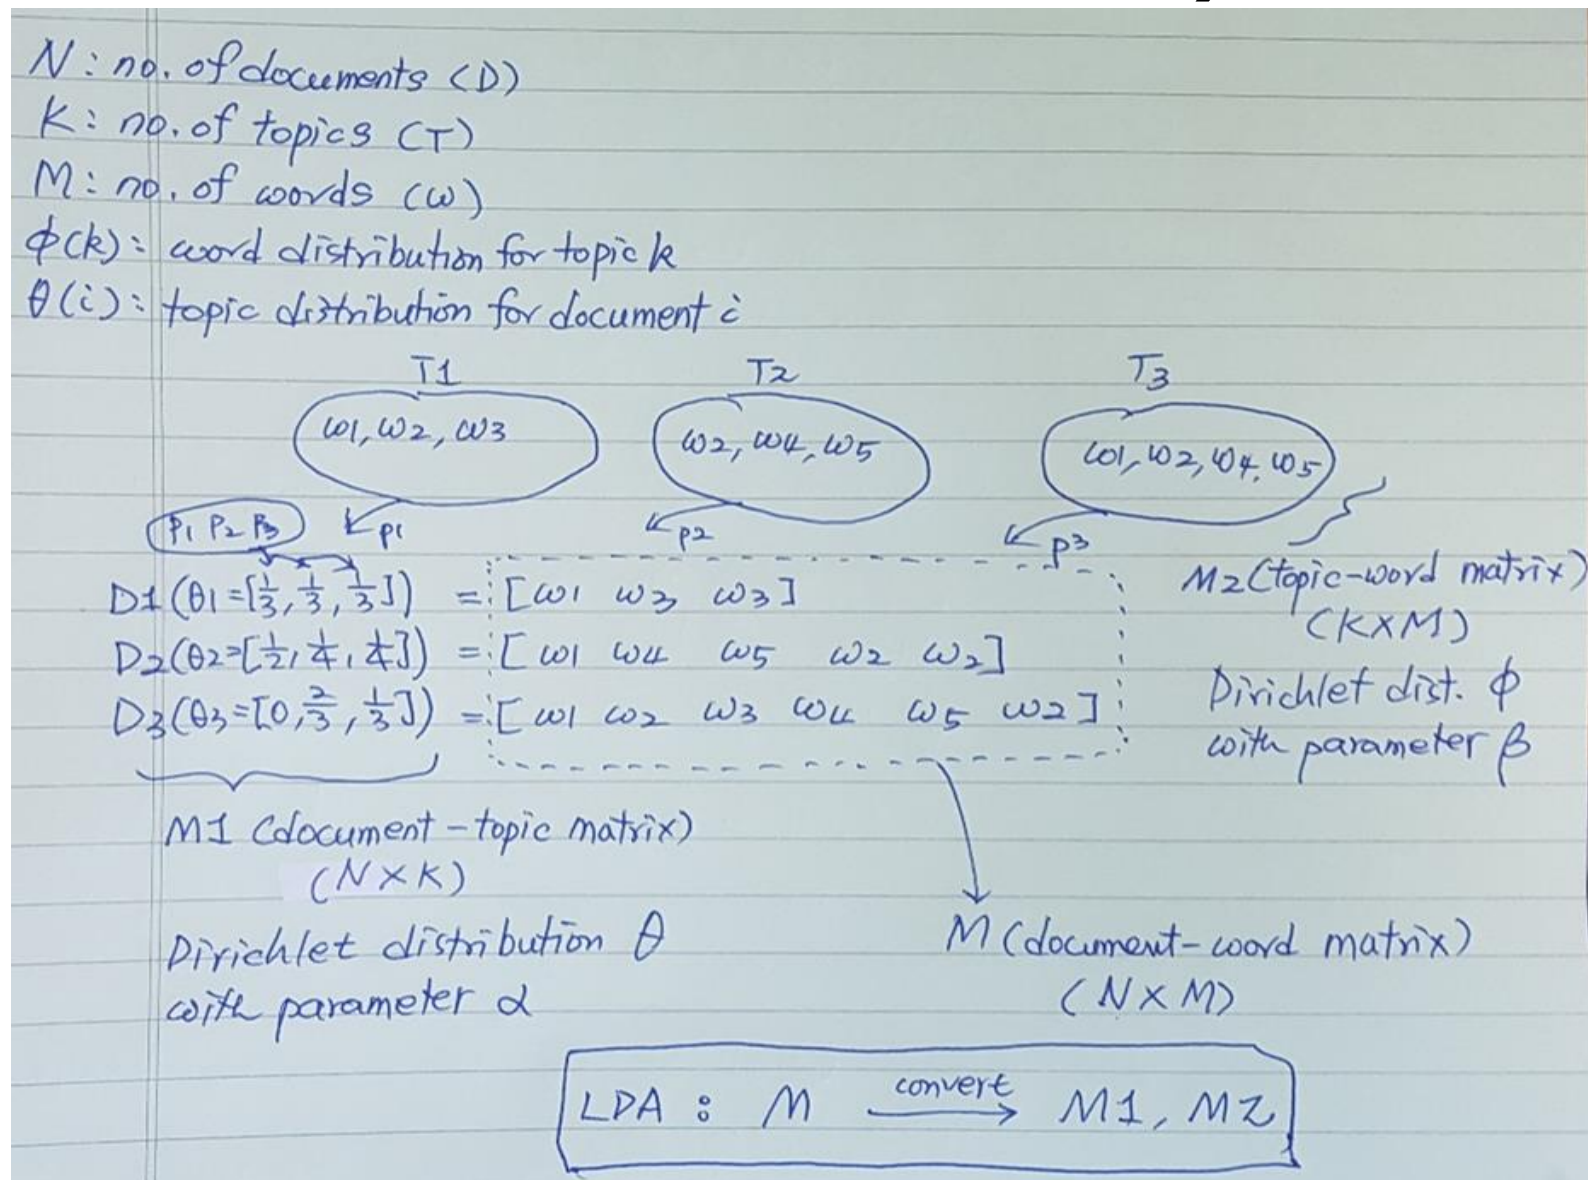 N: no. of documents (D)
K: no. of topics (T)
M: no. of words (ω)
ϕ(k): word distribution for topic k
θ(i): topic distribution for document i
T1 T2 T3
ω1, ω2, ω3
ω2, ω4, ω5
ω1, ω2, ω4, ω5
P1 P2 P3
p1
p2
p3
D1(θ1=[1/3, 1/3, 1/3]) = [ω1 ω3 ω3]
D2(θ2=[1/2, 1/4, 1/4]) = [ω1 ω4 ω5 ω2 ω2]
D3(θ3=[0, 2/3, 1/3]) = [ω1 ω2 ω3 ω4 ω5 ω2]
M2(topic-word matrix)
(K×M)
Dirichlet dist. ϕ
with parameter β
M1 (document-topic matrix)
(N×K)
Dirichlet distribution θ
with parameter α
M (document-word matrix)
(N×M)
LDA : M convert → M1, M2